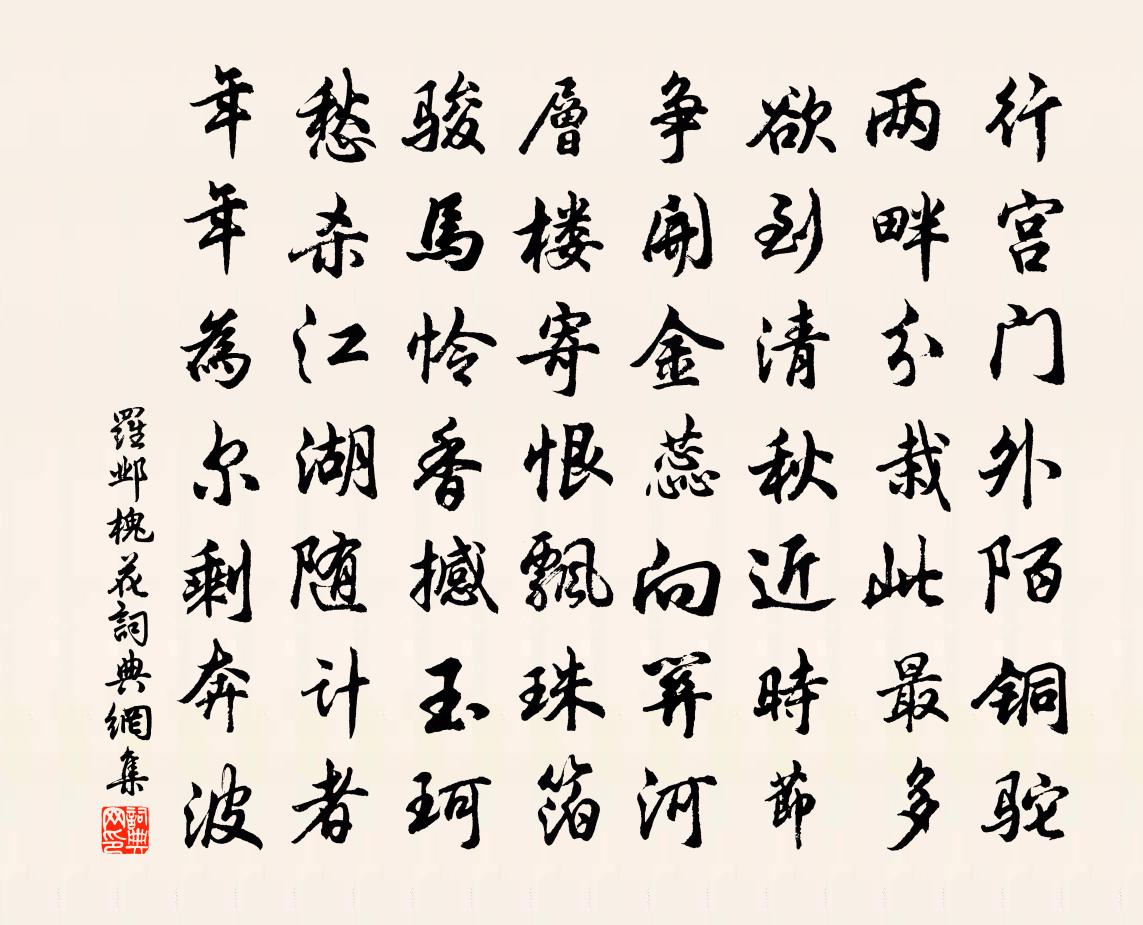 行宫门外陌铜驼
两畔分栽此最多
欲到清秋近時節
争開金蕊向關河
層楼寄恨飄珠箔
骏馬怜香撼玉珂
愁杀江湖随计者
年年為尔剩奔波
羅邺槐花詞典網集
詞典网印